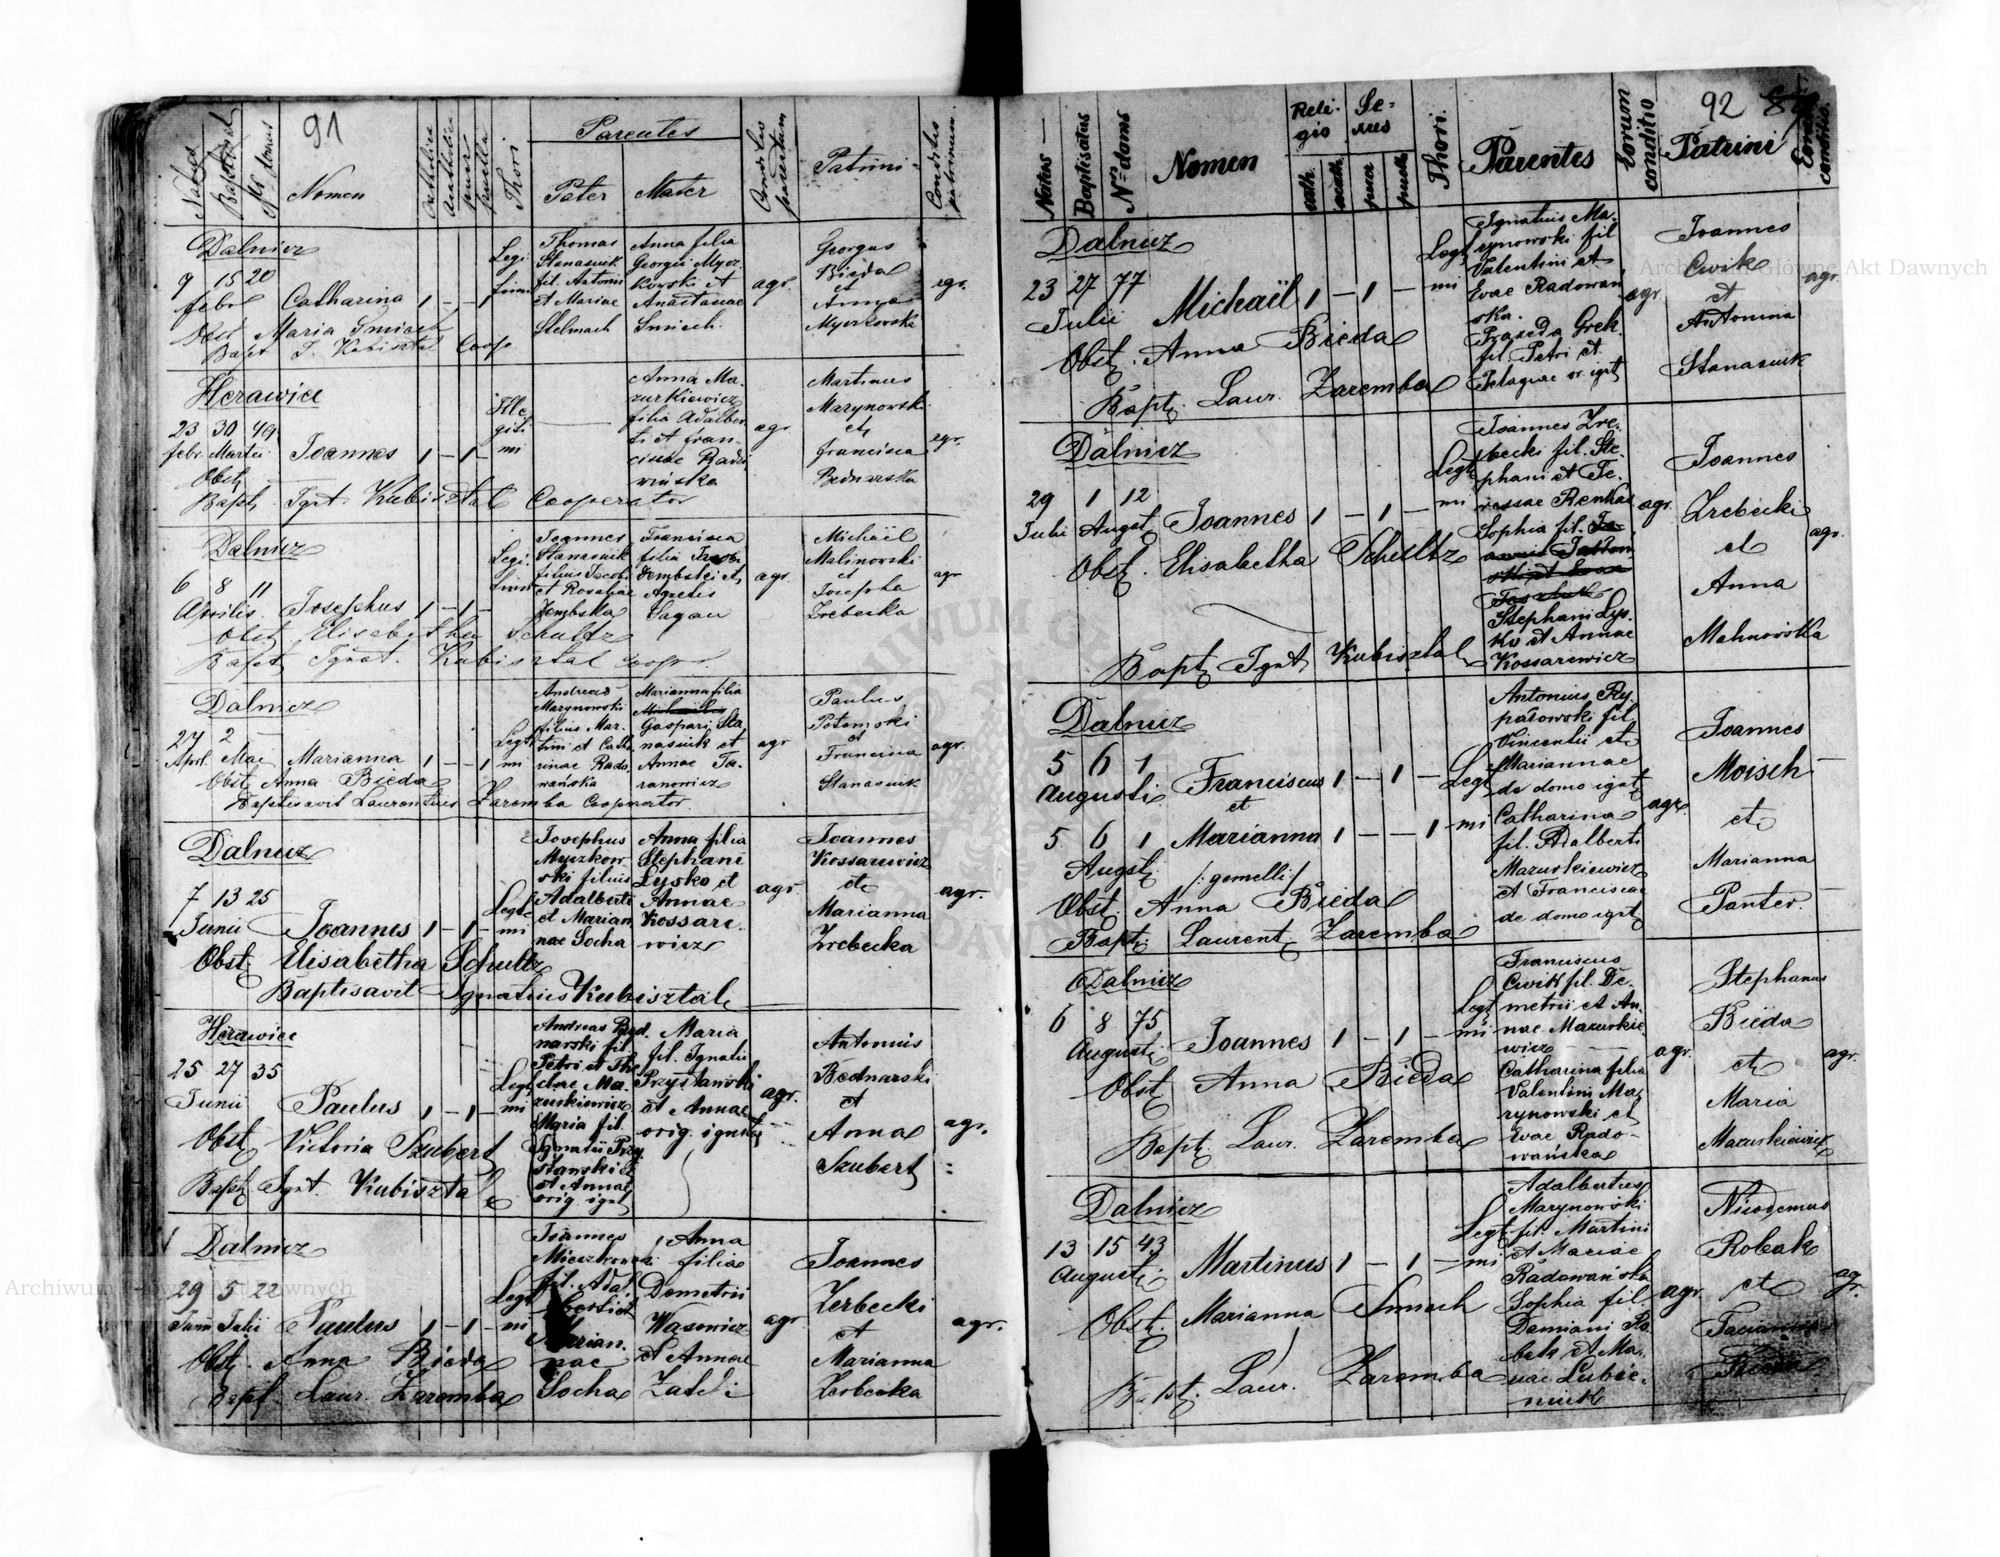 91
Natus
Baptisat
Nr domus
Nomen
Catholica
puer
puella
Thori
Parentes
Pater
Mater
Conditio parentum
Patrini
Conditio patrinum
Dalnicz
9 15 20
febr Catharina 1 - - 1
Legi
timi
Thomas
Stanasiuk
fil. Antonii
et Mariae
Stelmach
Anna filia
Georgii Mysz
kowski et
Anastasiae
Smisch.
agr.
Georgus
Bieda
et
Anna
Myszkowska
agr.
Obst Maria Smisch
Bapt I. Kubisztal Coop.
Herawice
23 30 49
febr. Martii Joannes 1 - 1 -
Ille
giti
mi
Anna Ma-
zurkiewicz
filia Adalber
ti et Fran-
ciscae Rado
wińska
agr
Martinus
Marynowsk
et
Francisca
Bednarska
agr.
Obst
Bapt. Ignt. Kubisztal Cooperator
Dalnicz
6 8 11
Aprilis Josephus 1 - 1 -
Legi-
timi
Joannes
Stanasiuk
filius Jacobi
et Rosaliae
Zembska
Francisca
filia Jacobi
Dembski et
Agnetis
Sagan
agr.
Michaël
Malinowski
et
Josepha
Zrebecka
agr
Obst Elisabetha Schultz
Bapt Ignat. Kubisztal coop.
Dalnicz
27 2 -
Apl. Mai Marianna 1 - - 1
Legt
mi
Andreas
Marynowski
filius Mar-
tini et Cath
rinae Rado.
wańska
Marianna filia
Gaspari Sta
nasiuk et
Annae Ta-
ranowicz
agr
Paulus
Potomski
et
Francisca
Stanasiuk
agr.
Obst Anna Bieda
Baptisavit Laurentius Zaremba Cooperator
Dalnicz
7 13 25
Junii Joannes 1 - 1 -
Legt
mi
Josephus
Myszkow-
ski filius
Adalberti
et Marian
nae Socha
Anna filia
Stephani
Lysko et
Annae
Kossare-
wicz
agr
Joannes
Kossarewicz
et
Marianna
Zrebecka
agr.
Obst. Elisabetha Schultz
Baptisavit Ignatius Kubisztal
Herawice
25 27 35
Junii Paulus 1 - 1 -
Legt
mi
Andreas Bed.
narski fil.
Petri et The
clae Ma-
zurkiewicz
Maria fil.
Ignatii Przy
stanski et
et Annae
orig. ignt
Maria
fil. Ignatii
Przystanski
et Annae
orig. ignota
agr.
Antonius
Bednarski
et
Anna
Szubert
agr.
Obst Victoria Szubert
Bapt Ignt. Kubisztal
Dalnicz
29 5 22
Juni Julii Paulus 1 - 1 -
Legt
mi
Joannes
Mieszkowski
fil. Adal
berti et
Marian-
nae
Socha
Anna
filia
Demetrii
Wasowicz
et Annae
agr
Joannes
Zerbecki
et
Marianna
Zerbecka
agr.
Obst. Anna Bieda
Bapt. Laur. Zaremba
92
Natus
Baptisatus
Nr domus
Nomen
Reli-
gio
Se-
xus
cath.
puer
puella
Thori.
Parentes
Eorum conditio
Patrini
Eorum conditio.
Dalnicz
23 27 77
Julii Michaël 1 - 1 -
Legt
mi
Ignatius Ma-
rynowski fil
Valentini et
Evae Radowan
ska.
Praxeda Grek
fil. Petri et
Pelagiae or. ignt
agr
Joannes
Cwik
et
Antonina
Stanasiuk
agr.
Obst. Anna Bieda
Bapt. Laur. Zaremba
Dalnicz
29 1 12
Julii Augst Joannes 1 - 1 -
Legt
mi
Joannes Zre-
becki fil. Ste-
phani et Te-
ressae Renkas
Sophia fil.
Stephani Lys-
ko et Annae
Kossarewicz
agr.
Joannes
Zrebecki
et
Anna
Mehnowska
agr.
Obst. Elisabetha Schultz
Bapt Ignt Kubisztal
Dalnicz
5 6 1
Augusti Franciscus 1 - 1 -
et
5 6 1 Marianna 1 - - 1
Augst. /: gemelli :/
Legt
mi
Antonius Ry-
parowski fil.
Vincentii et
Mariannae
de domo ignt
Catharina
fil. Adalberti
Mazurkiewicz
et Franciscae
de domo ignt
agr.
Joannes
Moisch
et
Marianna
Panter.
Obst. Anna Bieda
Bapt. Laurent. Zaremba
Dalnicz
6 8 75
Augusti Joannes 1 - 1 -
Legt
mi
Franciscus
Cwik fil. De-
metrii et An-
nae Mazurkie
wicz
Catharina filia
Valentini Ma-
rynowski et
Evae Rado-
wańska
agr.
Stephanus
Bieda
et
Maria
Mazurkiewicz
agr.
Obst Anna Bieda
Bapt. Laur. Zaremba
Dalnicz
13 15 43
Augusti Martinus 1 - 1 -
Legt
mi
Adalbertus
Marynowski
fil. Martini
et Mariae
Radowańska
Sophia fil.
Damiani Ro
bak et Ma-
riae Lubie-
niuk
agr.
Nicodemus
Robak
et
agr.
Obst. Marianna Smisch
Bapt. Laur. Zaremba
Archiwum Główne Akt Dawnych
Archiwum Główne Akt Dawnych